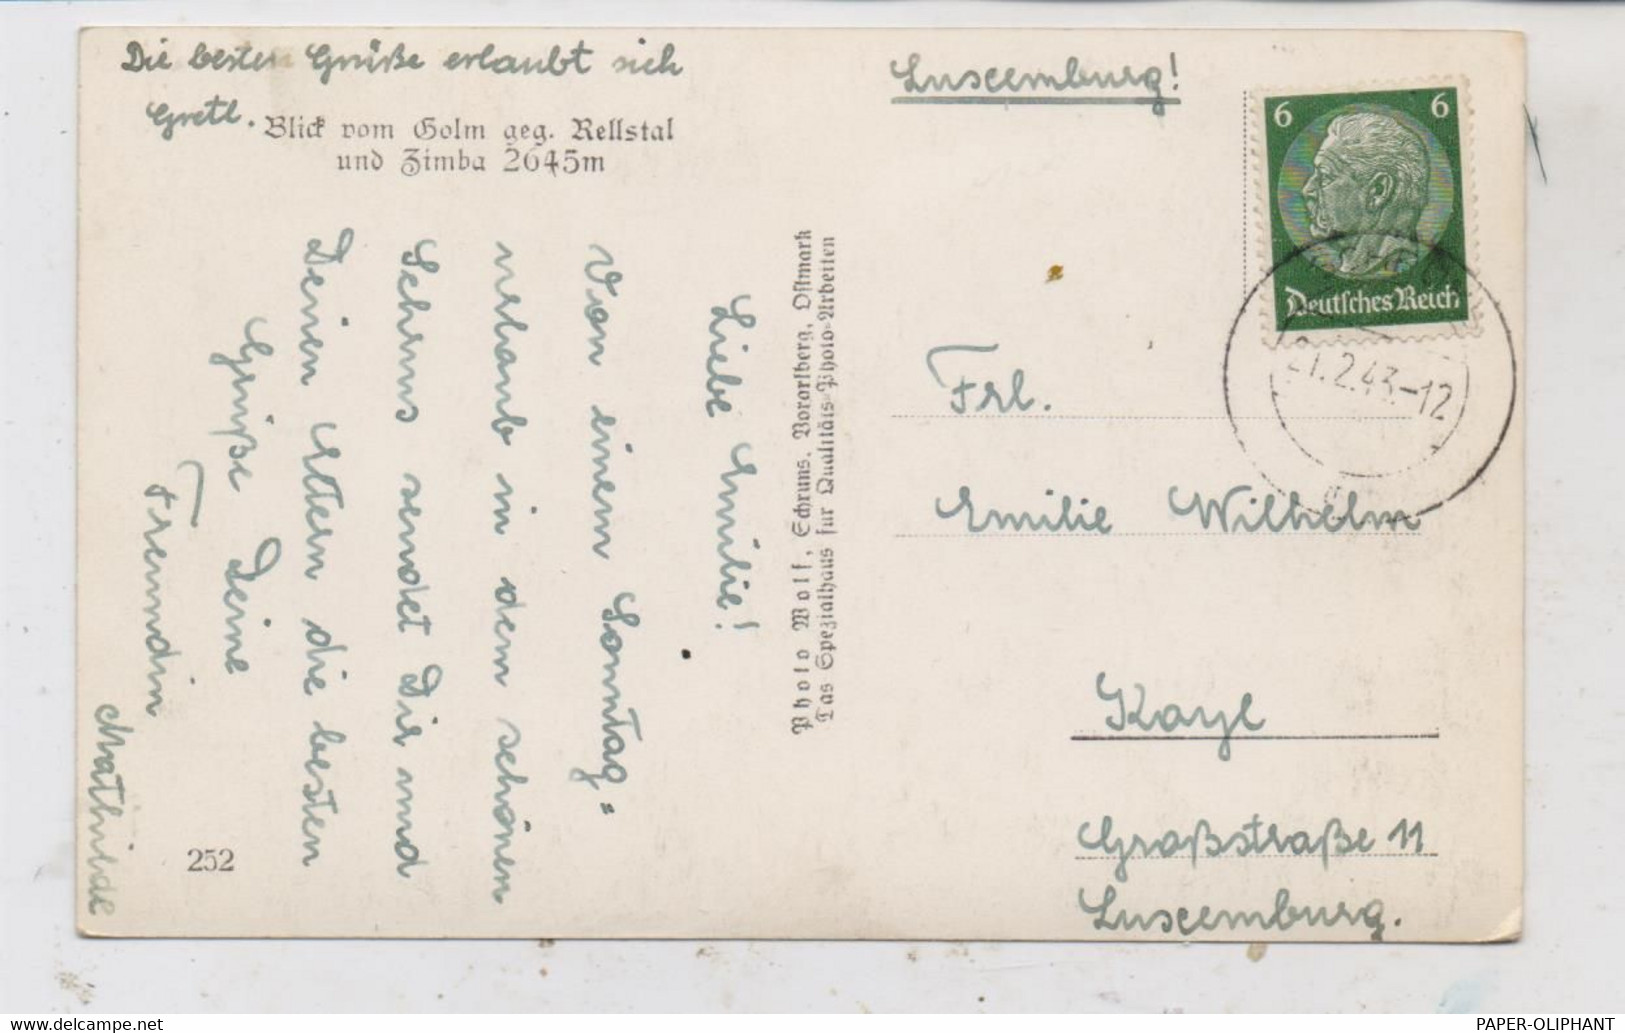 Die besten Grüße erlaubt sich
Gretl.
Blick vom Golm geg. Rellstal
und Zimba 2645m
Liebe Emilie!
Von einem Sonntag=
urlaub in dem schönen
Schruns sendet Dir und
Deinen Eltern die besten
Grüße Deine
Freundin
Mathilde
252
Photo Wolf, Schruns, Vorarlberg, Ostmark
Das Spezialhaus für Qualitäts-Photo-Arbeiten
Luxemburg!
6 6
Deutsches Reich
21.2.43.-12
Frl.
Emilie Wilhelm
Kayl
Großstraße 11
Luxemburg.
PAPER-OLIPHANT